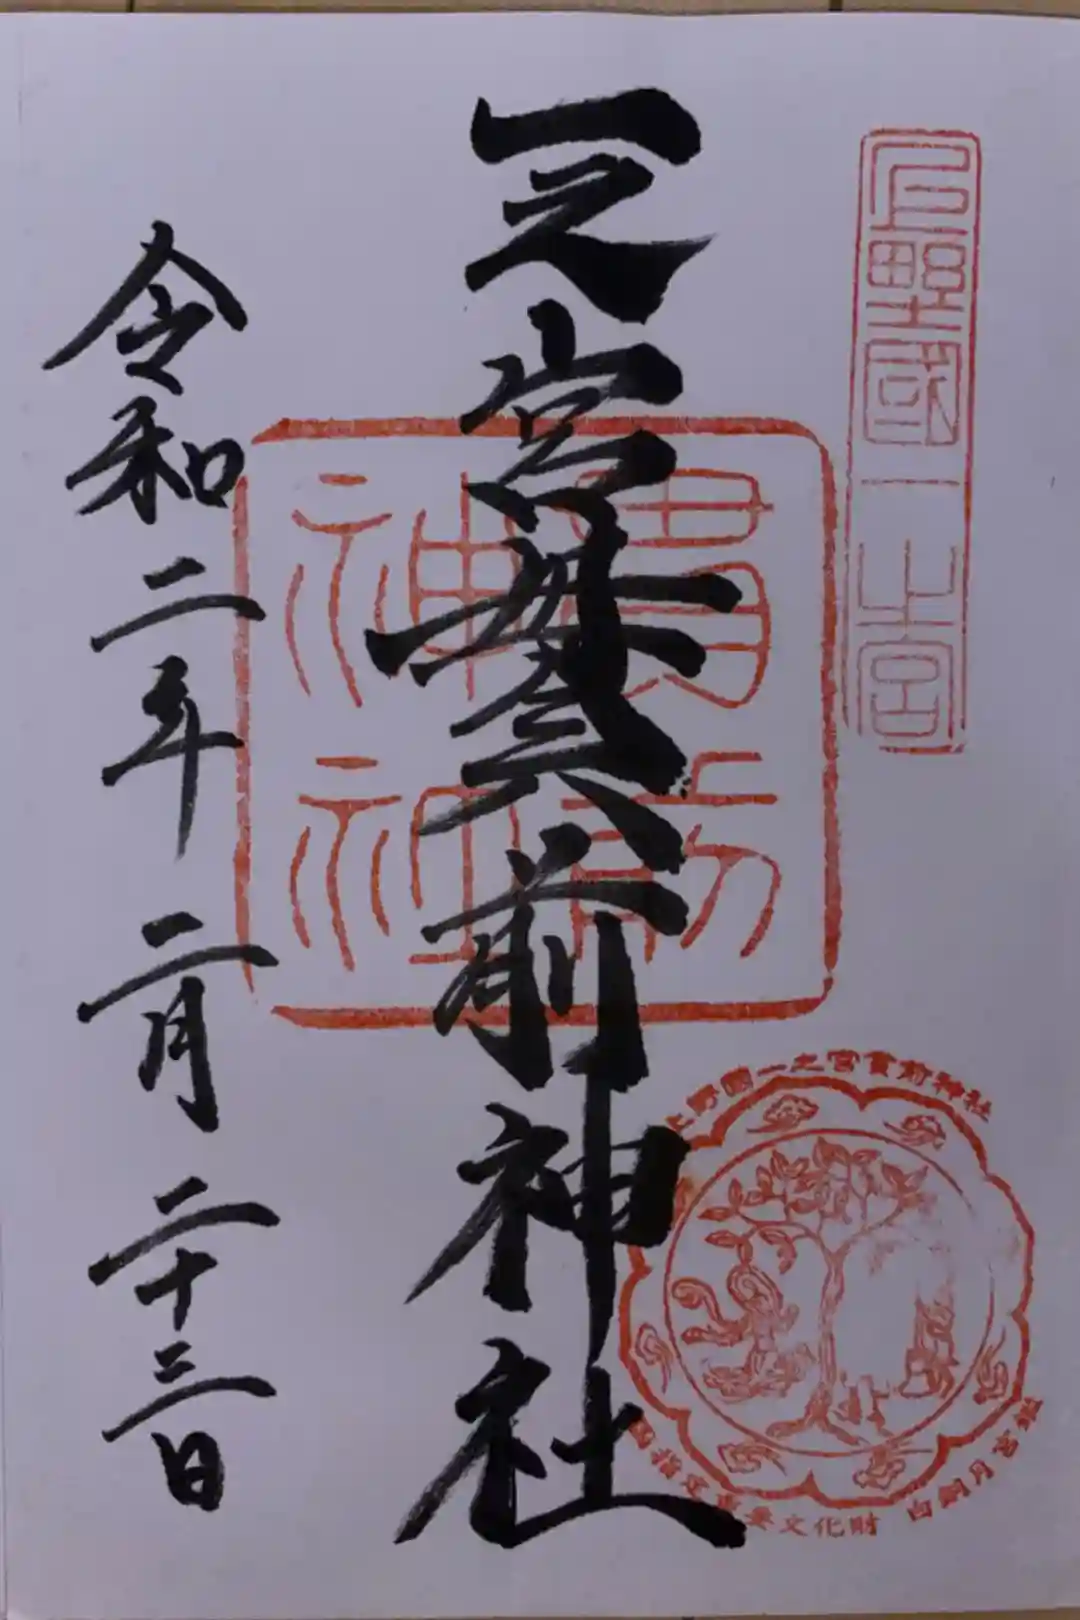 上野國一之宮
一之宮貫前神社
令和二年二月二十三日
貫前
神社
上野國一之宮貫前神社
國指定重要文化財 白銅月宮鑑